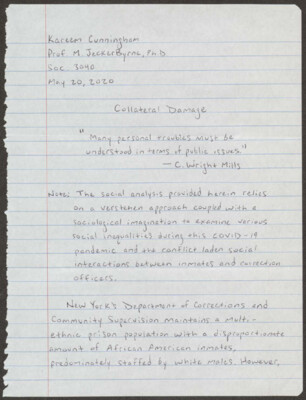 Kareem Cunningham
Prof. M. JeckerByrne, Ph.D
Soc. 3090
May 20, 2020
Collateral Damage
"Many personal troubles must be
understood in terms of public issues."
— C. Wright Mills
Notes: The social analysis provided herein relies
on a verstehen approach coupled with a
sociological imagination to examine various
social inequalities during this COVID-19
pandemic and the conflict laden social
interactions between inmates and correction
officers.
New York's Department of Corrections and
Community Supervision maintains a multi-
ethnic prison population with a disproportionate
amount of African American inmates,
predominately staffed by white males. However,